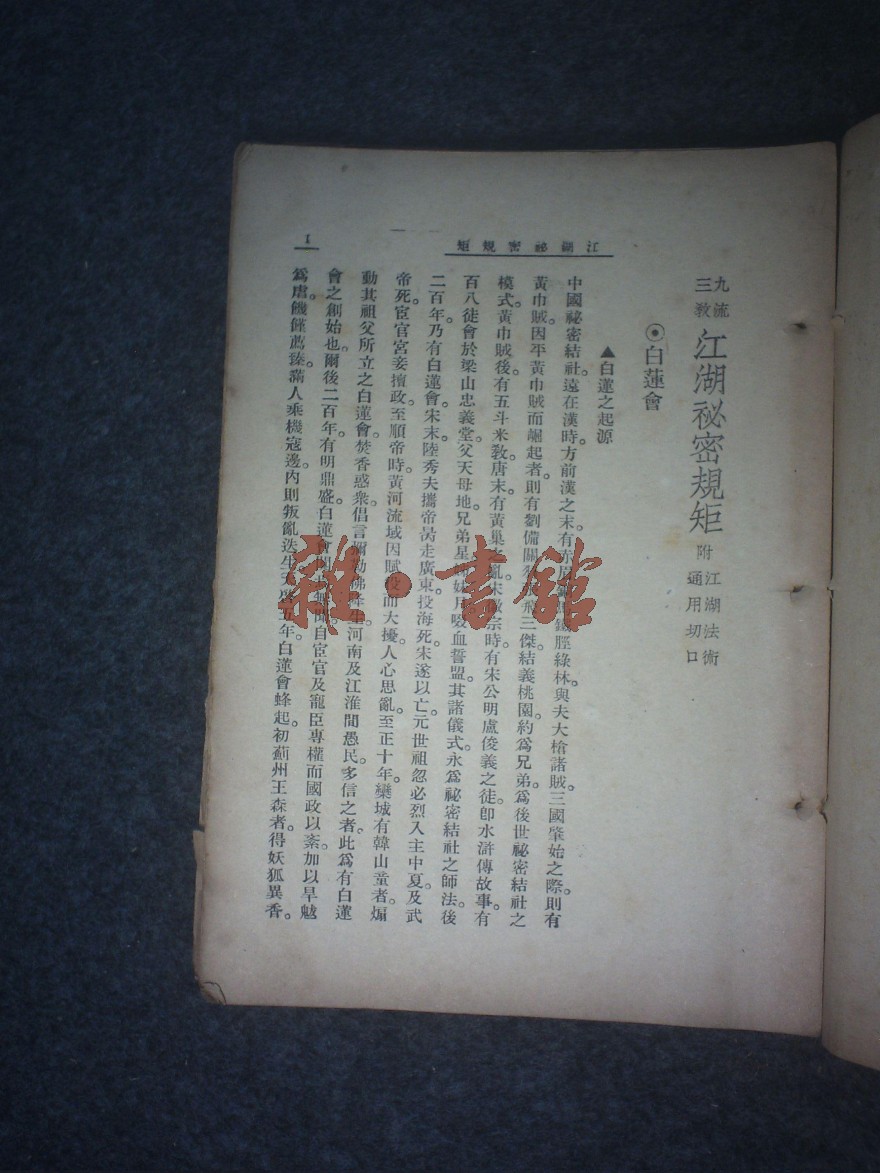 江湖祕密規矩
1
三教
九流
江湖祕密規矩
附江湖法術
通用切口
⦿白蓮會
▲白蓮之起源
中國祕密結社。遠在漢時。方前漢之末。有赤眉銅脛綠林與夫大槍諸賊。三國肇始之際。則有
黃巾賊。因平黃巾賊而崛起者。則有劉備關飛三傑。結義桃園。約爲兄弟。爲後世祕密結社之
模式。黃巾賊後。有五斗米敎。唐末有黃巢之亂。宋徽宗時。有宋公明盧俊義之徒。卽水滸傳故事。有
百八徒會於梁山忠義堂。父天母地。兄弟星妹月。歃血誓盟。其諸儀式。永爲祕密結社之師法。後
二百年。乃有白蓮會。宋末陸秀夫攜帝昺走廣東。投海死。宋遂以亡。元世祖忽必烈入主中夏。及武
帝死。宦官宮妾擅政。至順帝時。黃河流域。因賦役而大擾。人心思亂。至正十年。欒城有韓山童者。煽
動其祖父所立之白蓮會。焚香惑衆。倡言彌勒佛降生。河南及江淮間愚民。多信之者。此爲有白蓮
會之創始也。爾後二百年。有明鼎盛。白蓮會聞。自宦官及寵臣專權。而國政以紊。加以旱魃
爲虐。饑饉薦臻。滿人乘機寇邊。內則叛亂迭生。天啓五年。白蓮會蜂起。初薊州王森者。得妖狐異香。
雜·書館